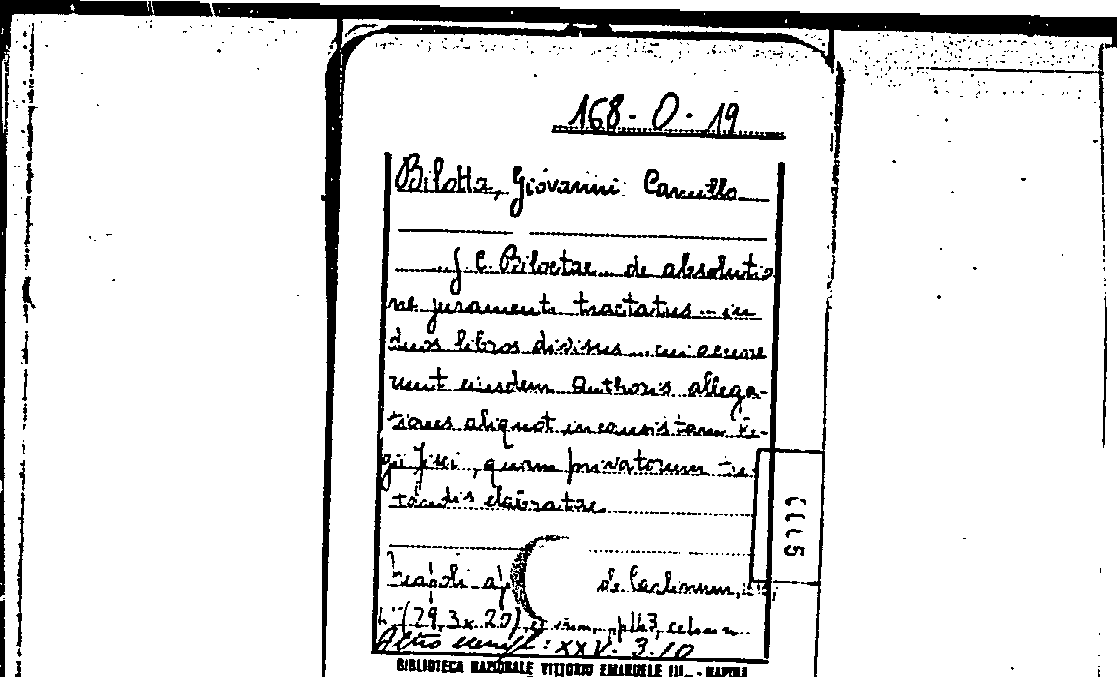 168-O-19
Bilotta, Giovanni Camillo
J. C. Bilottae de absolutio
ne juramenti tractatus in
duos libros divisus cui accure
runt eiusdem authoris allega-
tiones aliquot in causis tam Re-
gii Fisci, quam privatorum tu
tandis elaboratae
Neapoli
(29,3x20)
Altro : XXV. 3.10
BIBLIOTECA NAZIONALE VITTORIO EMANUELE III - NAPOLI